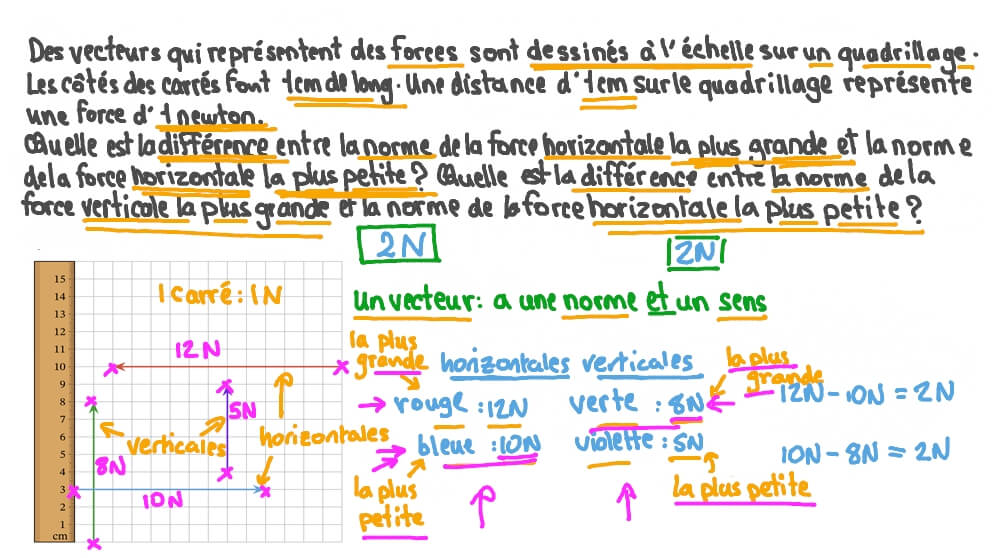 Des vecteurs qui représentent des forces sont dessinés à l'échelle sur un quadrillage.
Les côtés des carrés font 1cm de long. Une distance d'1cm sur le quadrillage représente
une force d'1 newton.
Quelle est la différence entre la norme de la force horizontale la plus grande et la norme
de la force horizontale la plus petite ? Quelle est la différence entre la norme de la
force verticale la plus grande et la norme de la force horizontale la plus petite ?
2N
2N
1 carré : 1N
un vecteur : a une norme et un sens
15
14
13
12
11
10
9
8
7
6
5
4
3
2
1
cm
12N
5N
verticales
horizontales
8N
10N
la plus
grande
horizontales verticales
la plus
grande
rouge : 12N
verte : 8N
12N - 10N = 2N
bleue : 10N
violette : 5N
10N - 8N = 2N
la plus
petite
la plus petite